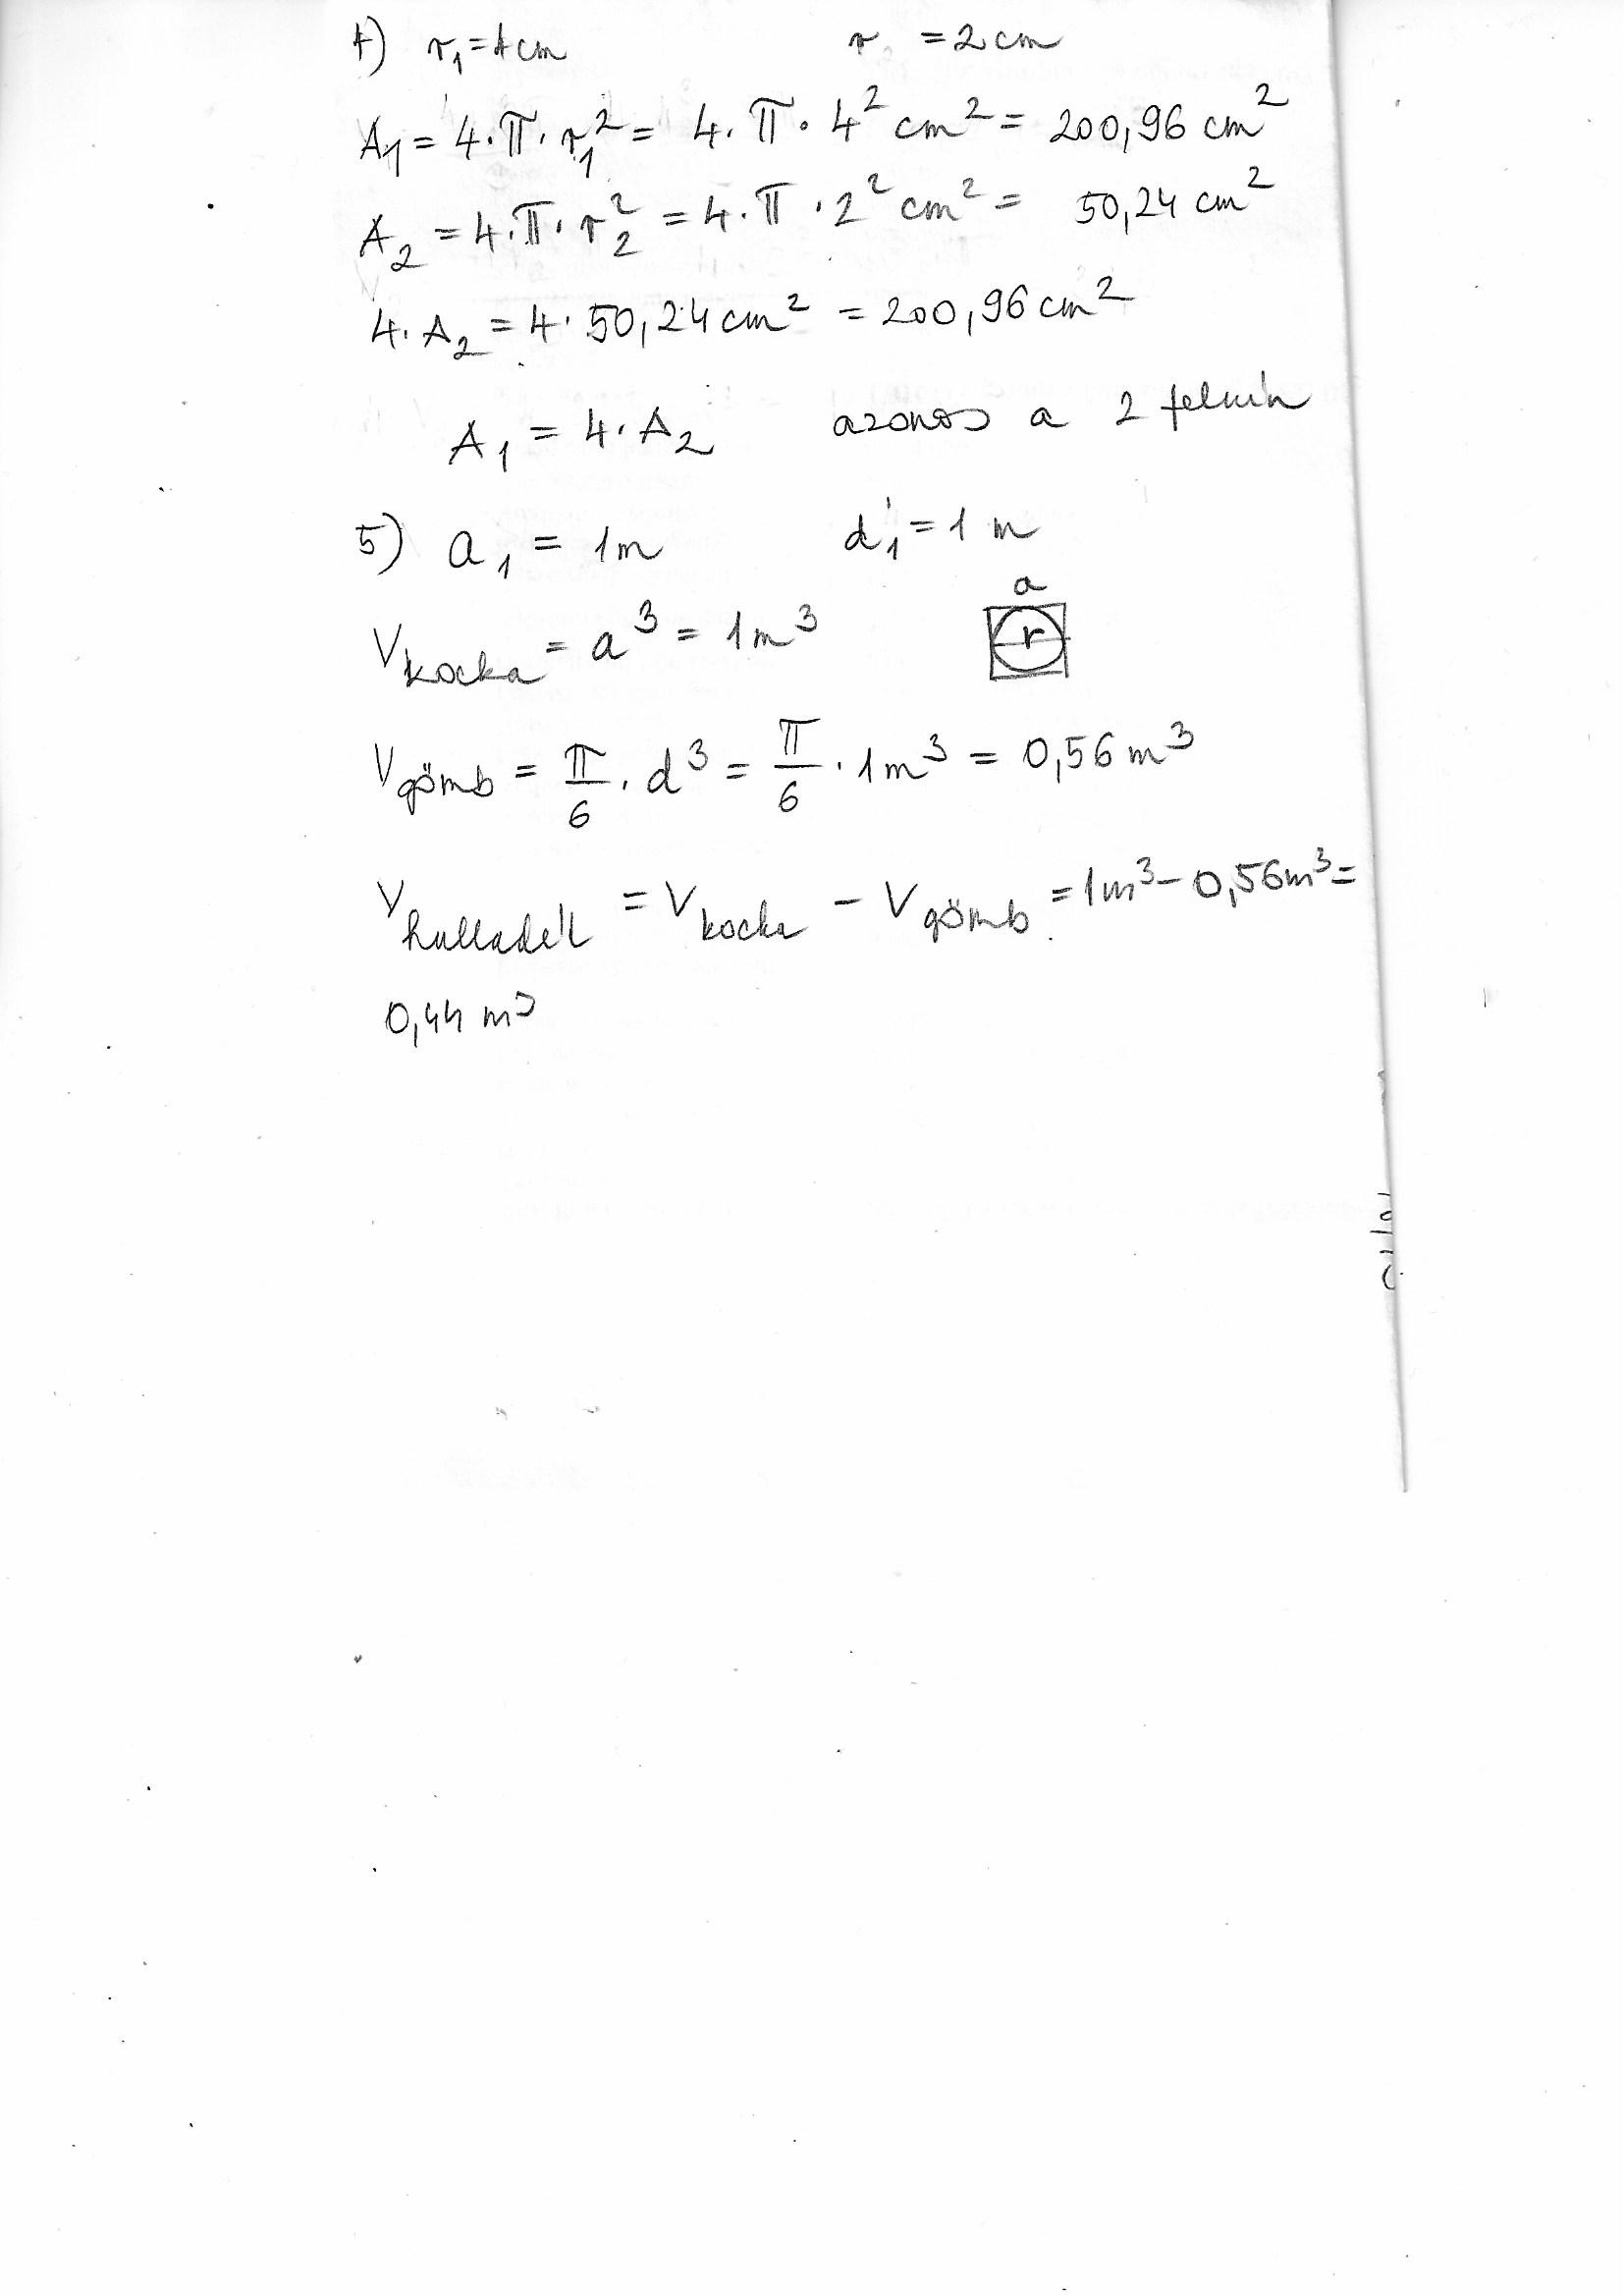 4) r₁=4cm r =2cm
A₁ = 4·π·r₁² = 4·π·4² cm² = 200,96 cm²
A₂ = 4·π·r₂² = 4·π·2² cm² = 50,24 cm²
4·A₂ = 4·50,24 cm² = 200,96 cm²
A₁ = 4·A₂ azonos a 2 felszín
5) a₁ = 1m d₁ = 1 m
a
V kocka = a³ = 1m³
r
V gömb = π/6 · d³ = π/6 · 1m³ = 0,56 m³
V hulladék = V kocka - V gömb = 1m³ - 0,56m³ =
0,44 m³